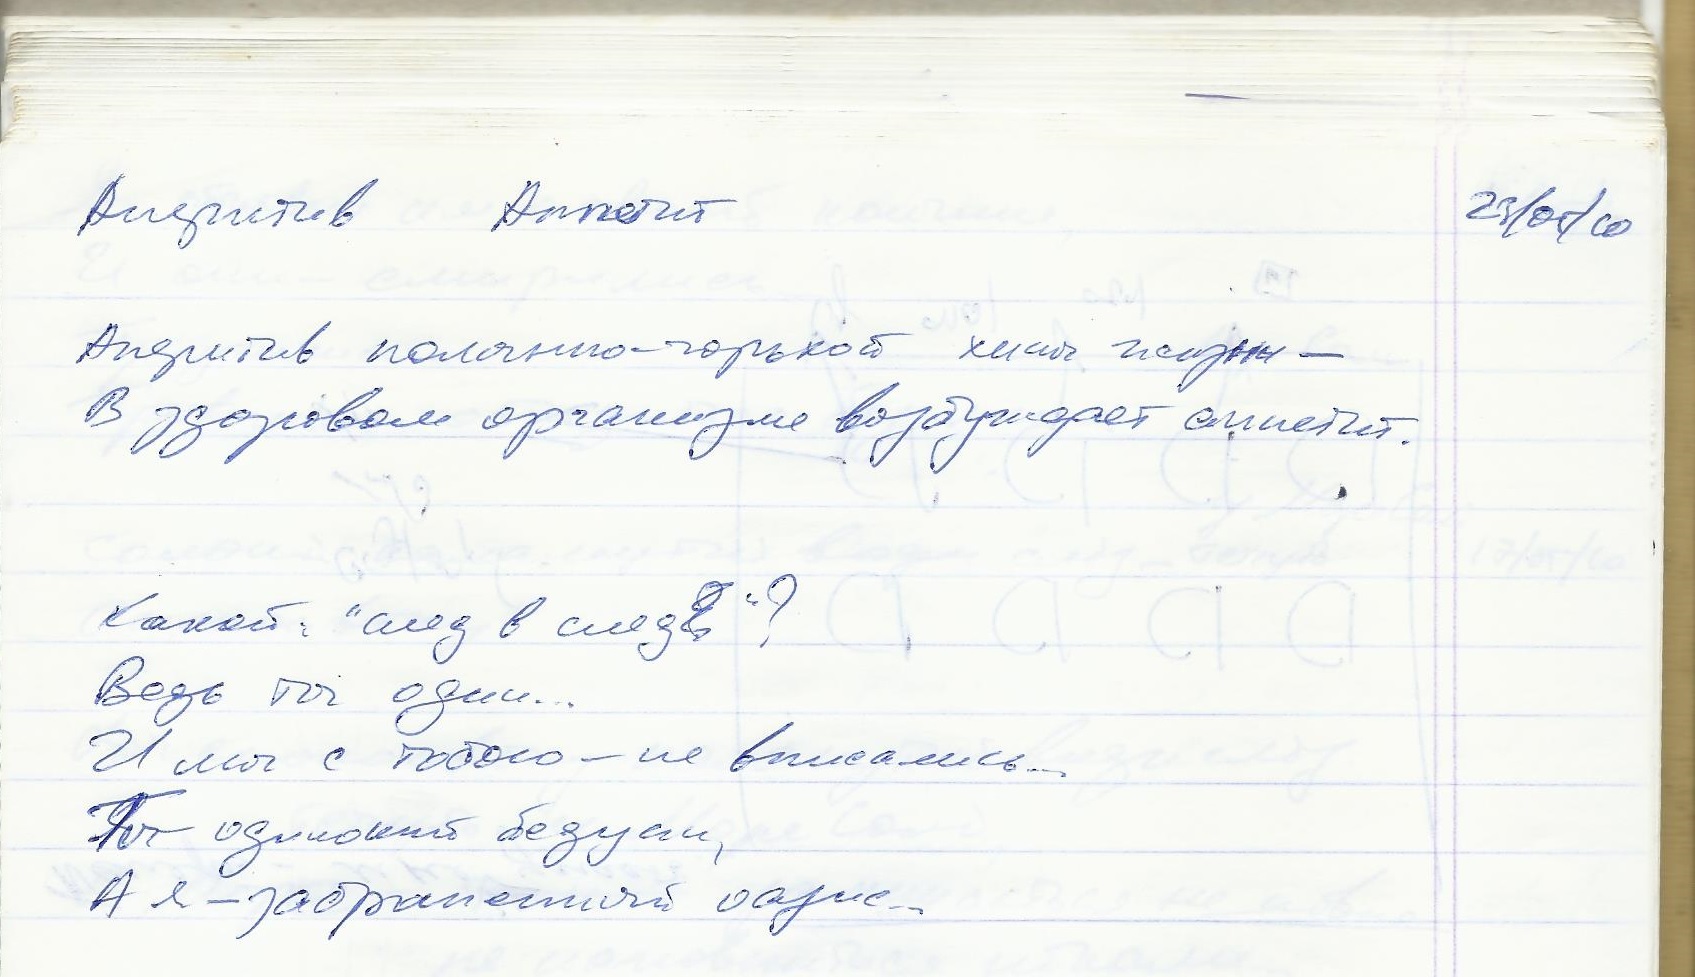 Аперитив Аппетит 23/05/10
Аперитив полынно-горькой хины жизни –
В здоровом организме возбуждает аппетит.
Какой: "след в след"?
Ведь ты один...
И мы с тобою – не вписались...
Ты одинокий бедуин,
А я – заброшенный оазис...